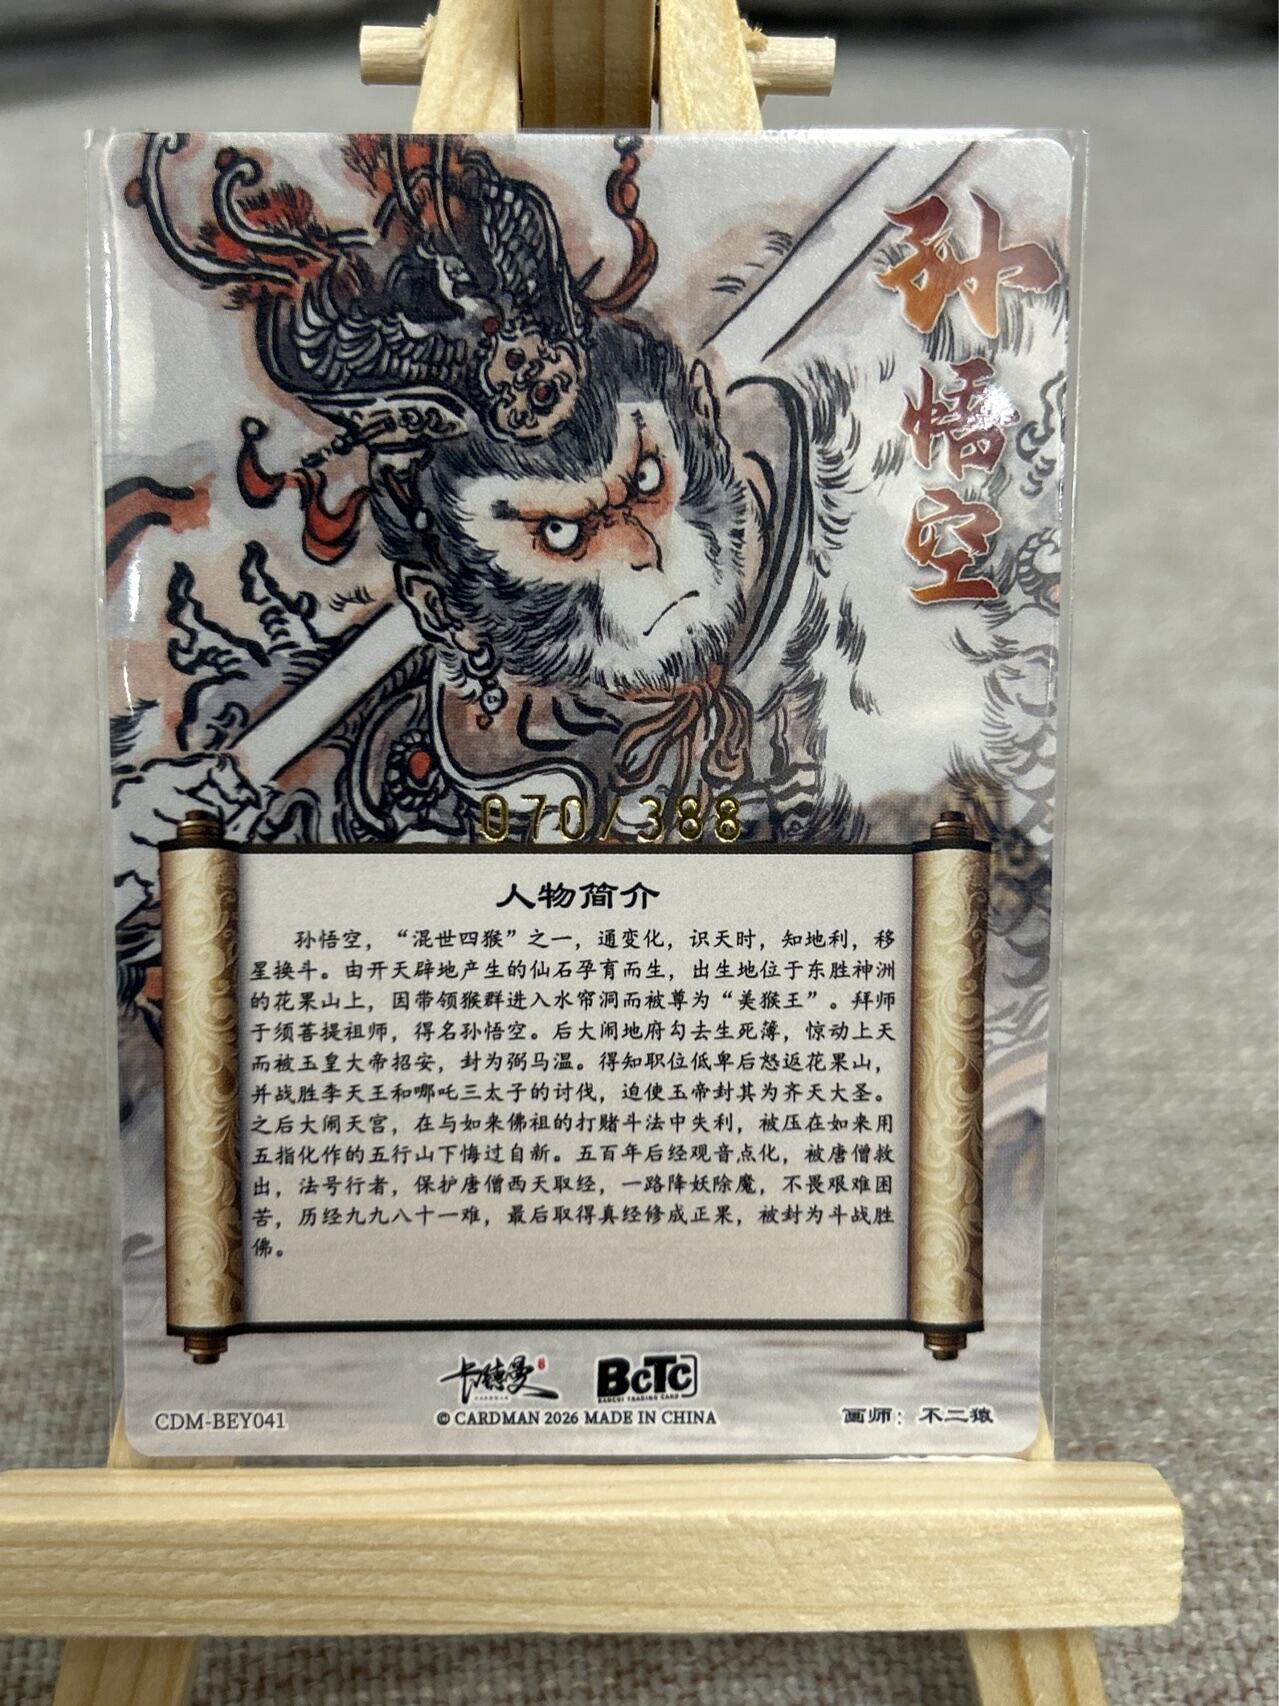 孙悟空
070/388
人物简介
孙悟空，“混世四猴”之一，通变化，识天时，知地利，移
星换斗。由开天辟地产生的仙石孕育而生，出生地位于东胜神洲
的花果山上，因带领猴群进入水帘洞而被尊为“美猴王”。拜师
于须菩提祖师，得名孙悟空。后大闹地府勾去生死薄，惊动上天
而被玉皇大帝招安，封为弼马温。得知职位低卑后怒返花果山，
并战胜李天王和哪吒三太子的讨伐，迫使玉帝封其为齐天大圣。
之后大闹天宫，在与如来佛祖的打赌斗法中失利，被压在如来用
五指化作的五行山下悔过自新。五百年后经观音点化，被唐僧救
出，法号行者，保护唐僧西天取经，一路降妖除魔，不畏艰难困
苦，历经九九八十一难，最后取得真经修成正果，被封为斗战胜
佛。
卡德曼
CARDMAN
BCTC
CDM-BEY041
© CARDMAN 2026 MADE IN CHINA
画师：不二猿